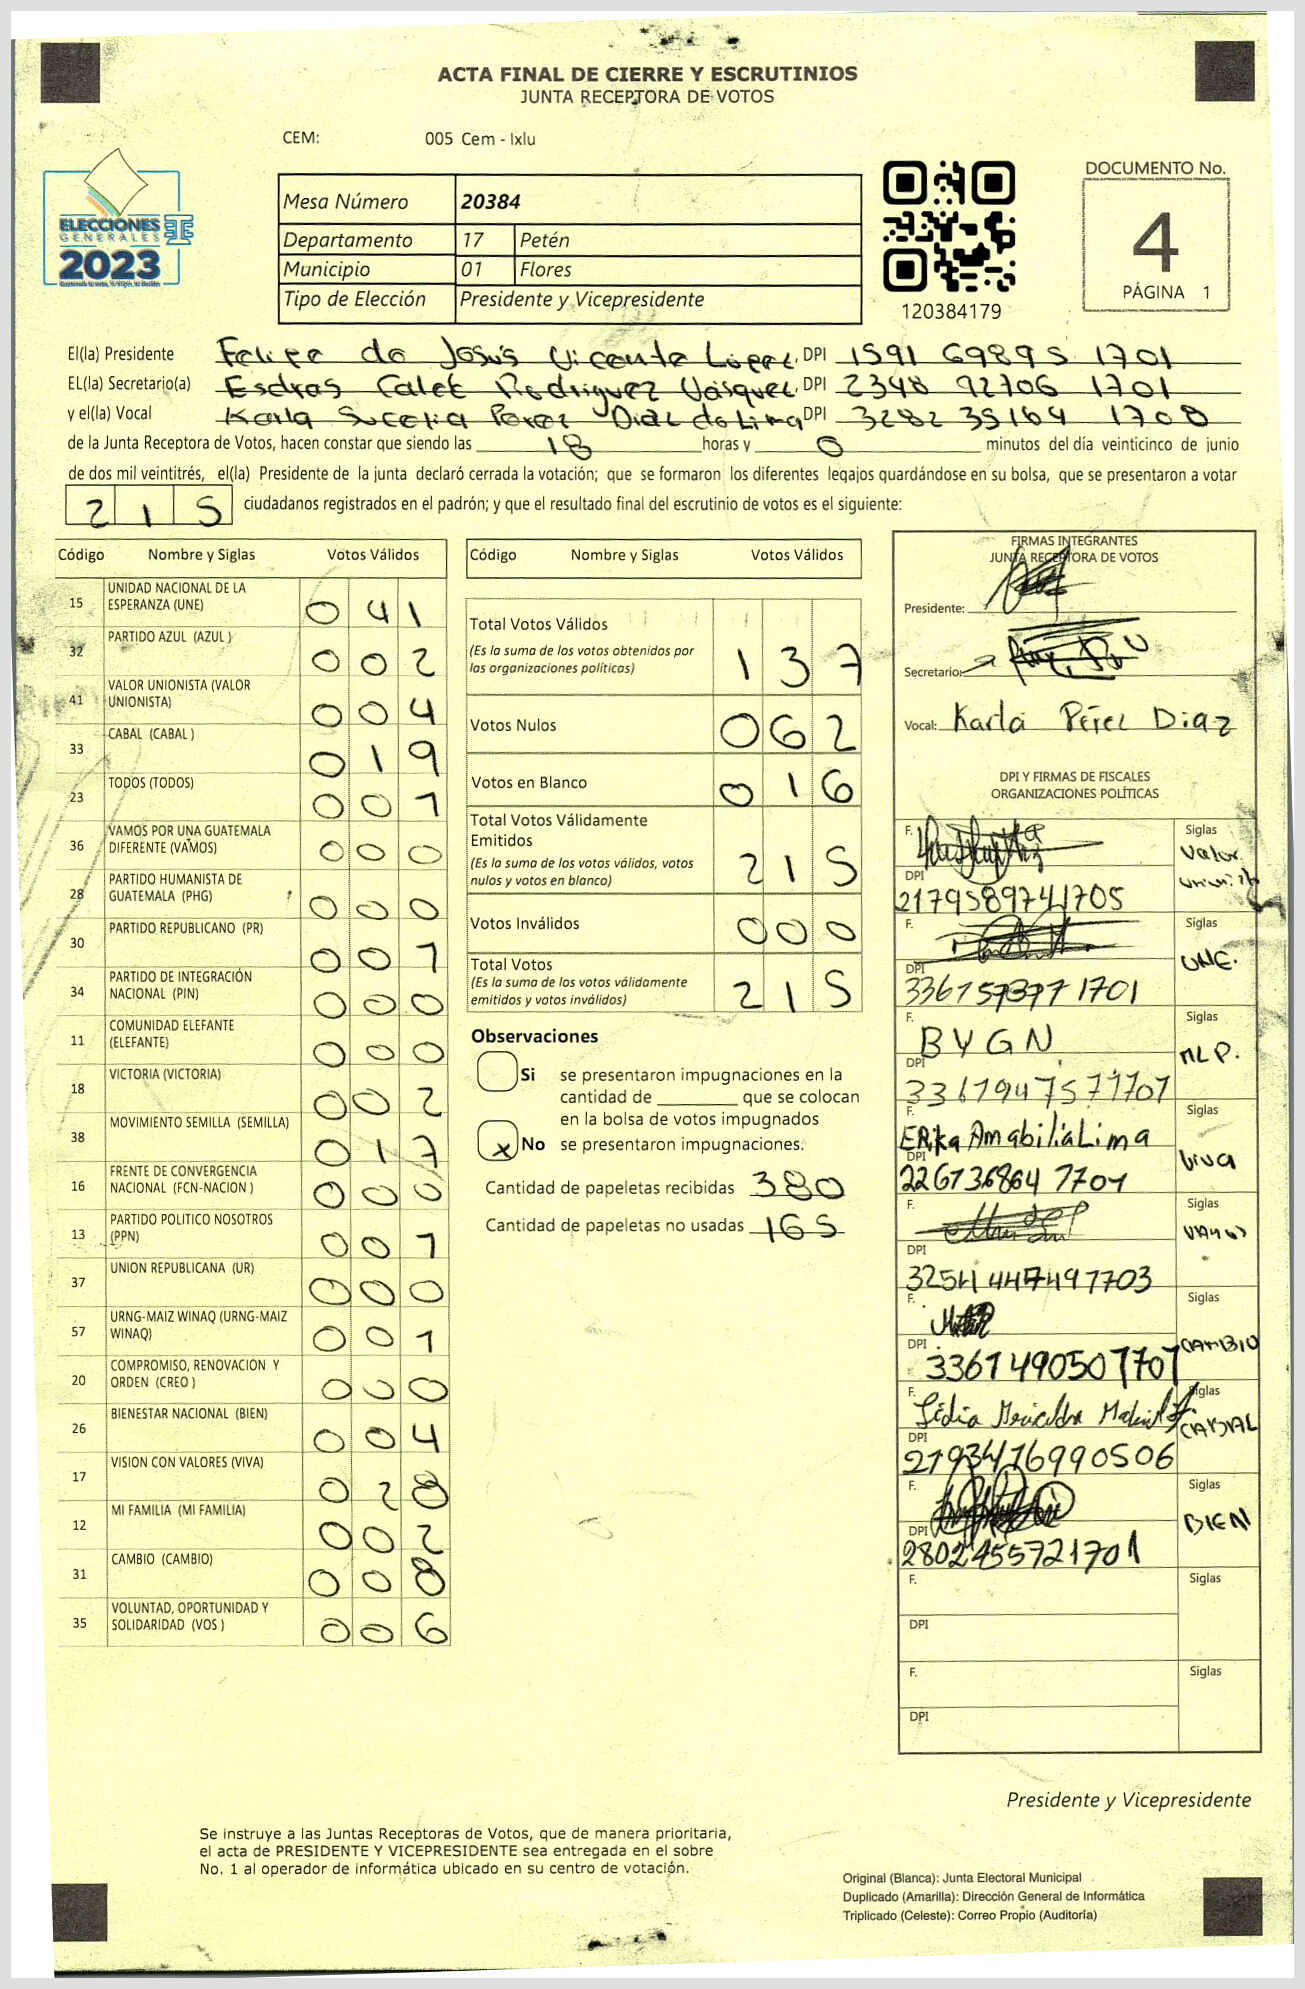 ACTA FINAL DE CIERRE Y ESCRUTINIOS
JUNTA RECEPTORA DE VOTOS
CEM: 005 Cem - Ixlu
ELECCIONES
GENERALES
2023
Mesa Número 20384
Departamento 17 Petén
Municipio 01 Flores
Tipo de Elección Presidente y Vicepresidente
120384179
DOCUMENTO No.
4
PÁGINA 1
El(la) Presidente Felipe de Jesús Vicente López DPI 1591 69895 1701
EL(la) Secretario(a) Esdras Calet Rodriguez Vásquez DPI 2348 92706 1701
y el(la) Vocal Karla Sucelia Perez Diaz de Lima DPI 3282 35164 1708
de la Junta Receptora de Votos, hacen constar que siendo las 18 horas y 0 minutos del día veinticinco de junio
de dos mil veintitrés, el(la) Presidente de la junta declaró cerrada la votación; que se formaron los diferentes legajos quardándose en su bolsa, que se presentaron a votar
215 ciudadanos registrados en el padrón; y que el resultado final del escrutinio de votos es el siguiente:
Código Nombre y Siglas Votos Válidos
15 UNIDAD NACIONAL DE LA ESPERANZA (UNE) 041
32 PARTIDO AZUL (AZUL ) 002
41 VALOR UNIONISTA (VALOR UNIONISTA) 004
33 CABAL (CABAL ) 019
23 TODOS (TODOS) 001
36 VAMOS POR UNA GUATEMALA DIFERENTE (VAMOS) 000
28 PARTIDO HUMANISTA DE GUATEMALA (PHG) 000
30 PARTIDO REPUBLICANO (PR) 001
34 PARTIDO DE INTEGRACIÓN NACIONAL (PIN) 000
11 COMUNIDAD ELEFANTE (ELEFANTE) 000
18 VICTORIA (VICTORIA) 002
38 MOVIMIENTO SEMILLA (SEMILLA) 017
16 FRENTE DE CONVERGENCIA NACIONAL (FCN-NACION ) 000
13 PARTIDO POLITICO NOSOTROS (PPN) 001
37 UNION REPUBLICANA (UR) 000
57 URNG-MAIZ WINAQ (URNG-MAIZ WINAQ) 001
20 COMPROMISO, RENOVACION Y ORDEN (CREO ) 000
26 BIENESTAR NACIONAL (BIEN) 004
17 VISION CON VALORES (VIVA) 028
12 MI FAMILIA (MI FAMILIA) 002
31 CAMBIO (CAMBIO) 008
35 VOLUNTAD, OPORTUNIDAD Y SOLIDARIDAD (VOS ) 006
Código Nombre y Siglas Votos Válidos
Total Votos Válidos 137
(Es la suma de los votos obtenidos por
las organizaciones políticas)
Votos Nulos 062
Votos en Blanco 016
Total Votos Válidamente
Emitidos 215
(Es la suma de los votos válidos, votos
nulos y votos en blanco)
Votos Inválidos 000
Total Votos 215
(Es la suma de los votos válidamente
emitidos y votos inválidos)
Observaciones
Si se presentaron impugnaciones en la
cantidad de ________ que se colocan
en la bolsa de votos impugnados
x No se presentaron impugnaciones.
Cantidad de papeletas recibidas 380
Cantidad de papeletas no usadas 165
FIRMAS INTEGRANTES
JUNTA RECEPTORA DE VOTOS
Presidente:
Secretario:
Vocal: Karla Pérez Diaz
DPI Y FIRMAS DE FISCALES
ORGANIZACIONES POLÍTICAS
F. Siglas Valor
DPI 2179589741705
F. Siglas UNE.
DPI 3361573971701
F. BYGN Siglas MLP.
DPI 3361947571701
F. Erika Amabilia Lima Siglas Viva
DPI 2261368641701
F. Siglas VAMOS
DPI 3254444749 1703
F. Siglas CAMBIO
DPI 3361490501701
F. Lidia Siglas CABAL
DPI 2193416990506
F. Siglas BIEN
DPI 2802455721701
F. Siglas
DPI
F. Siglas
DPI
Presidente y Vicepresidente
Se instruye a las Juntas Receptoras de Votos, que de manera prioritaria,
el acta de PRESIDENTE Y VICEPRESIDENTE sea entregada en el sobre
No. 1 al operador de informática ubicado en su centro de votación.
Original (Blanca): Junta Electoral Municipal
Duplicado (Amarilla): Dirección General de Informática
Triplicado (Celeste): Correo Propio (Auditoría)